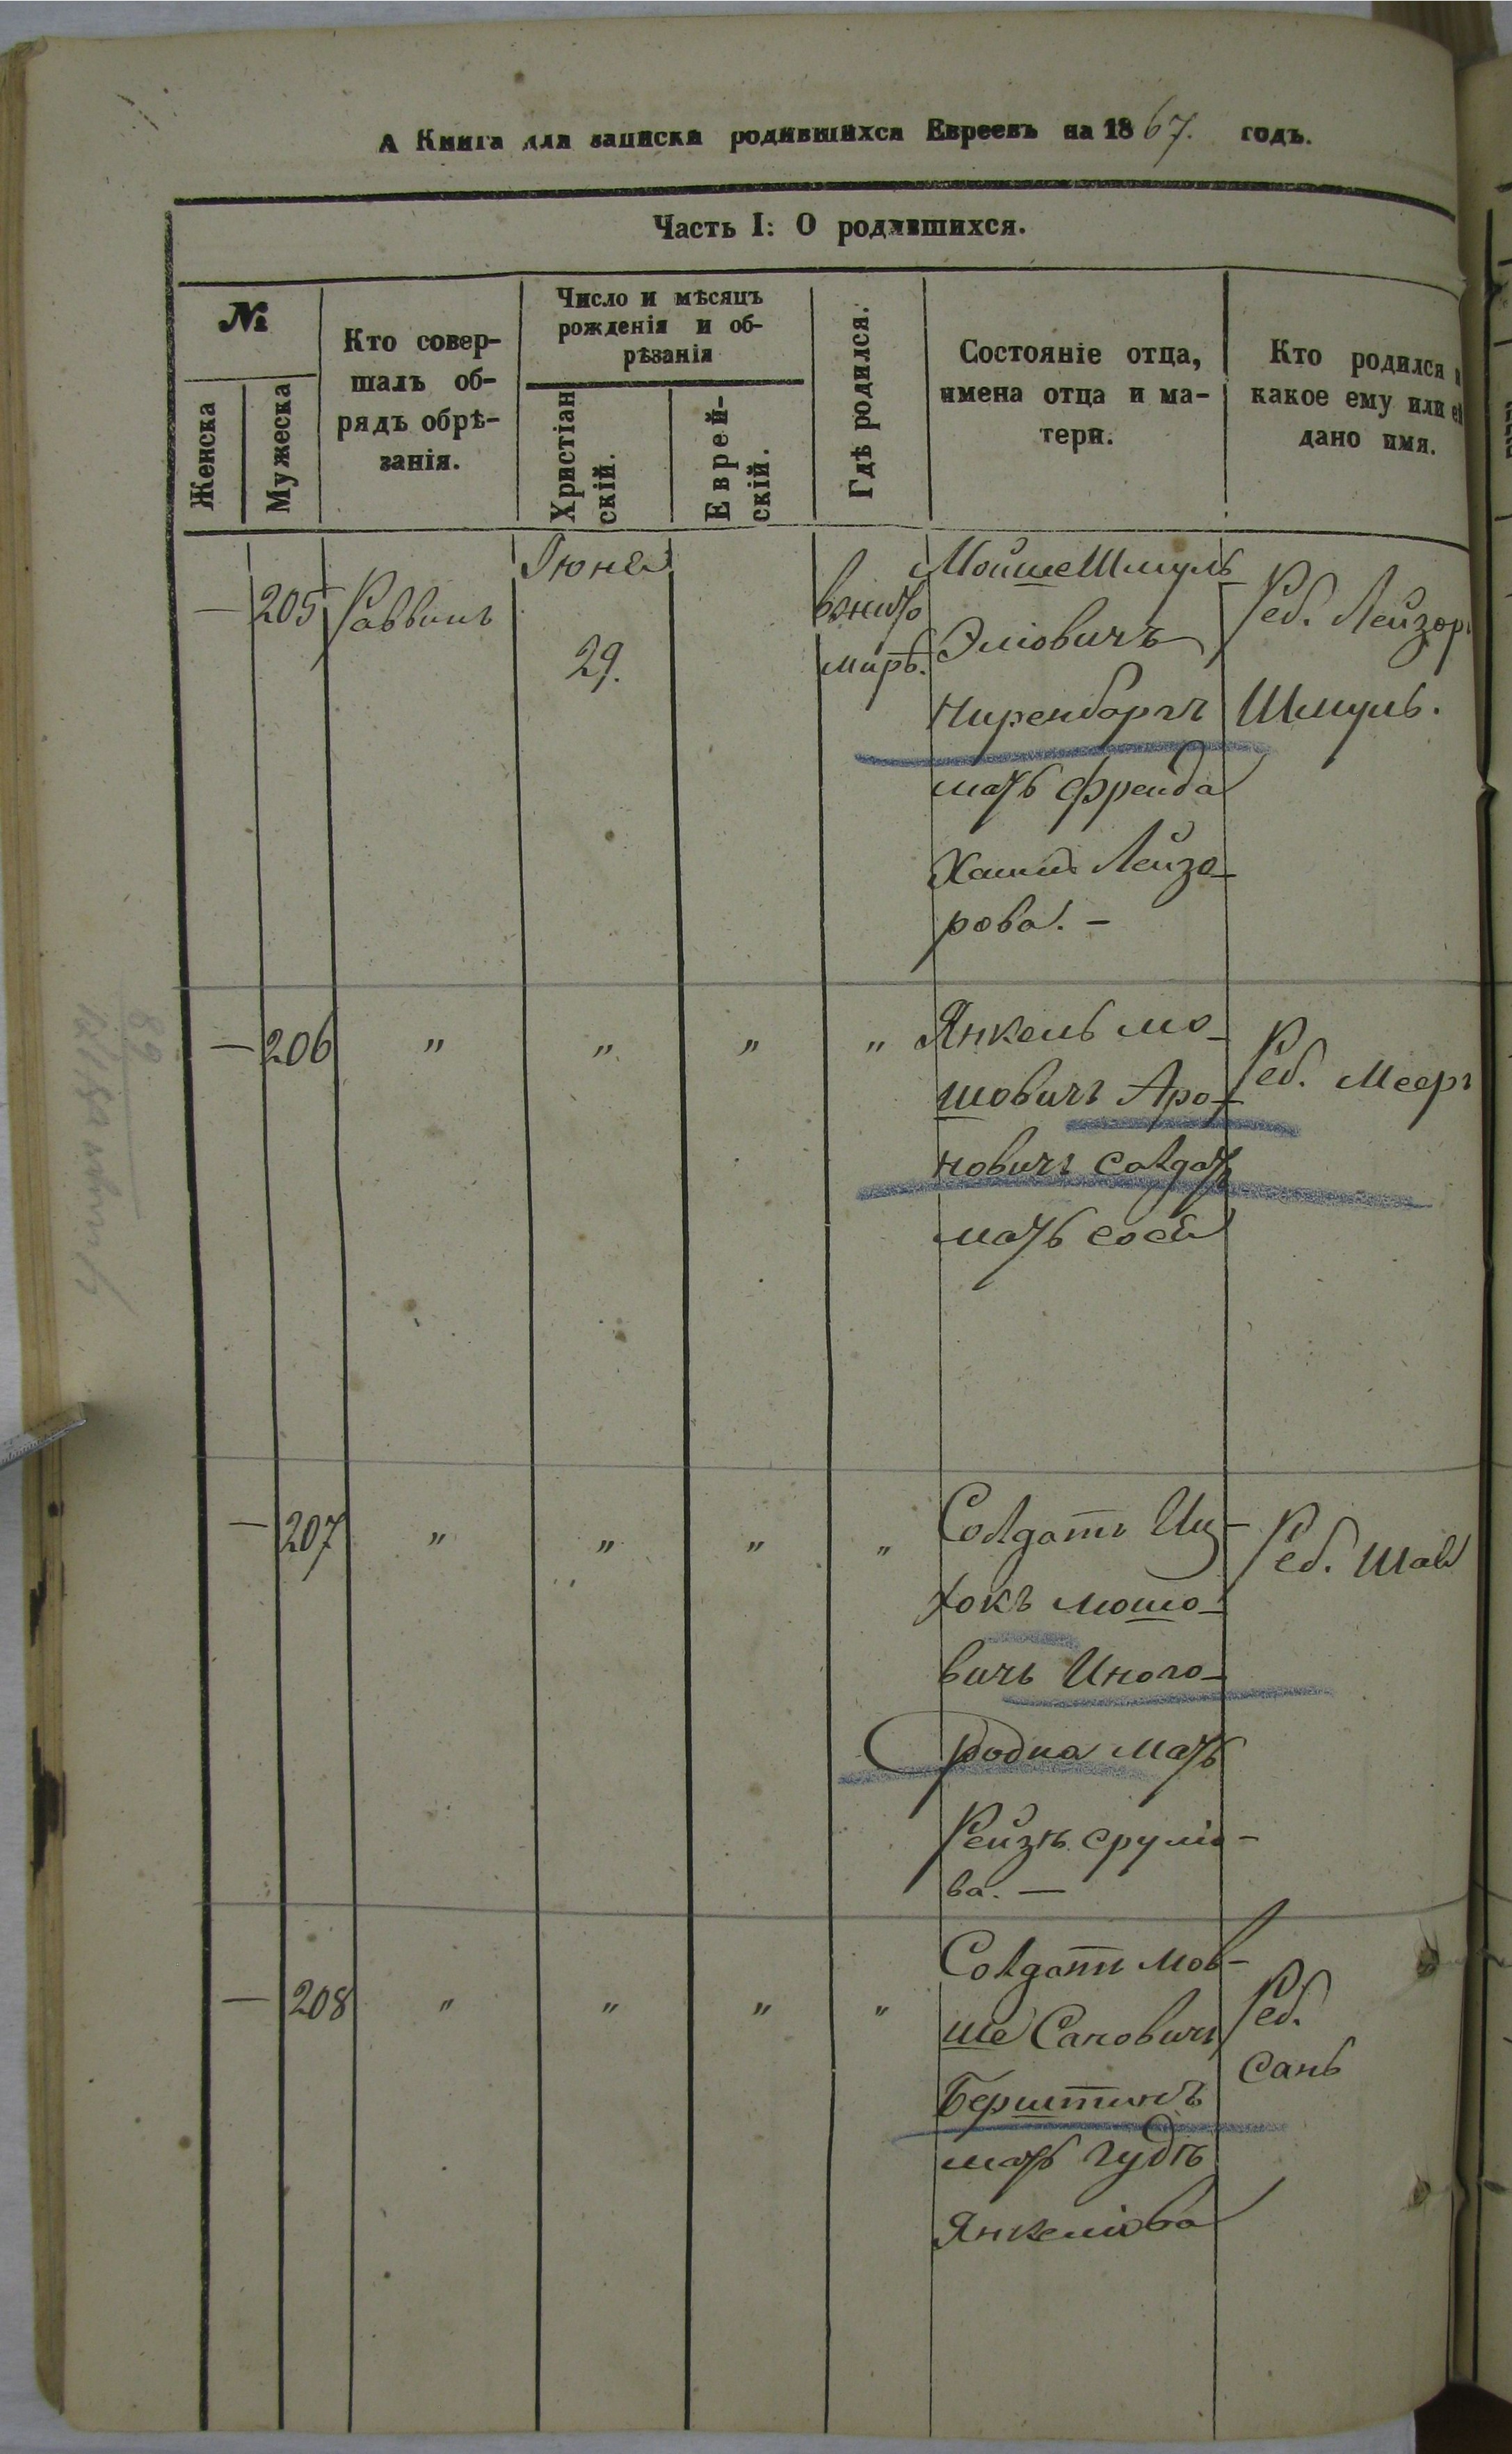 А Книга для записки родившихся Евреевъ на 1867. годъ.
Часть I: О родившихся.
№
Женска
Мужеска
Кто совер-
шалъ об-
рядъ обрѣ-
занія.
Число и мѣсяцъ
рожденія и об-
рѣзанія
Христіан
скій.
Еврей-
скій.
Гдѣ родился.
Состояніе отца,
имена отца и ма-
тери.
Кто родился и
какое ему или ей
дано имя.
— 205 Раввинъ
Іюня
29.
вжито
миръ.
МойшеШмуль
Эліовичъ
Ниренбаргъ
мать Фрейда
Лейзо-
рова. —
Реб. Лейзоръ
Шмуль.
— 206 " " " "
Янкель мо-
шовичъ Аро-
новичъ солдатъ
мать сося
Реб. Мееръ
— 207 " " " "
Солдатъ Иц-
хокъ мошо-
вичъ Иного-
родна мать
Рейзѣ сруліо-
ва. —
Реб. Шая
— 208 " " " "
Солдатъ Мов-
ше Сановичъ
Берштинъ
мать гудѣ
Янкеліова
Реб.
Сань